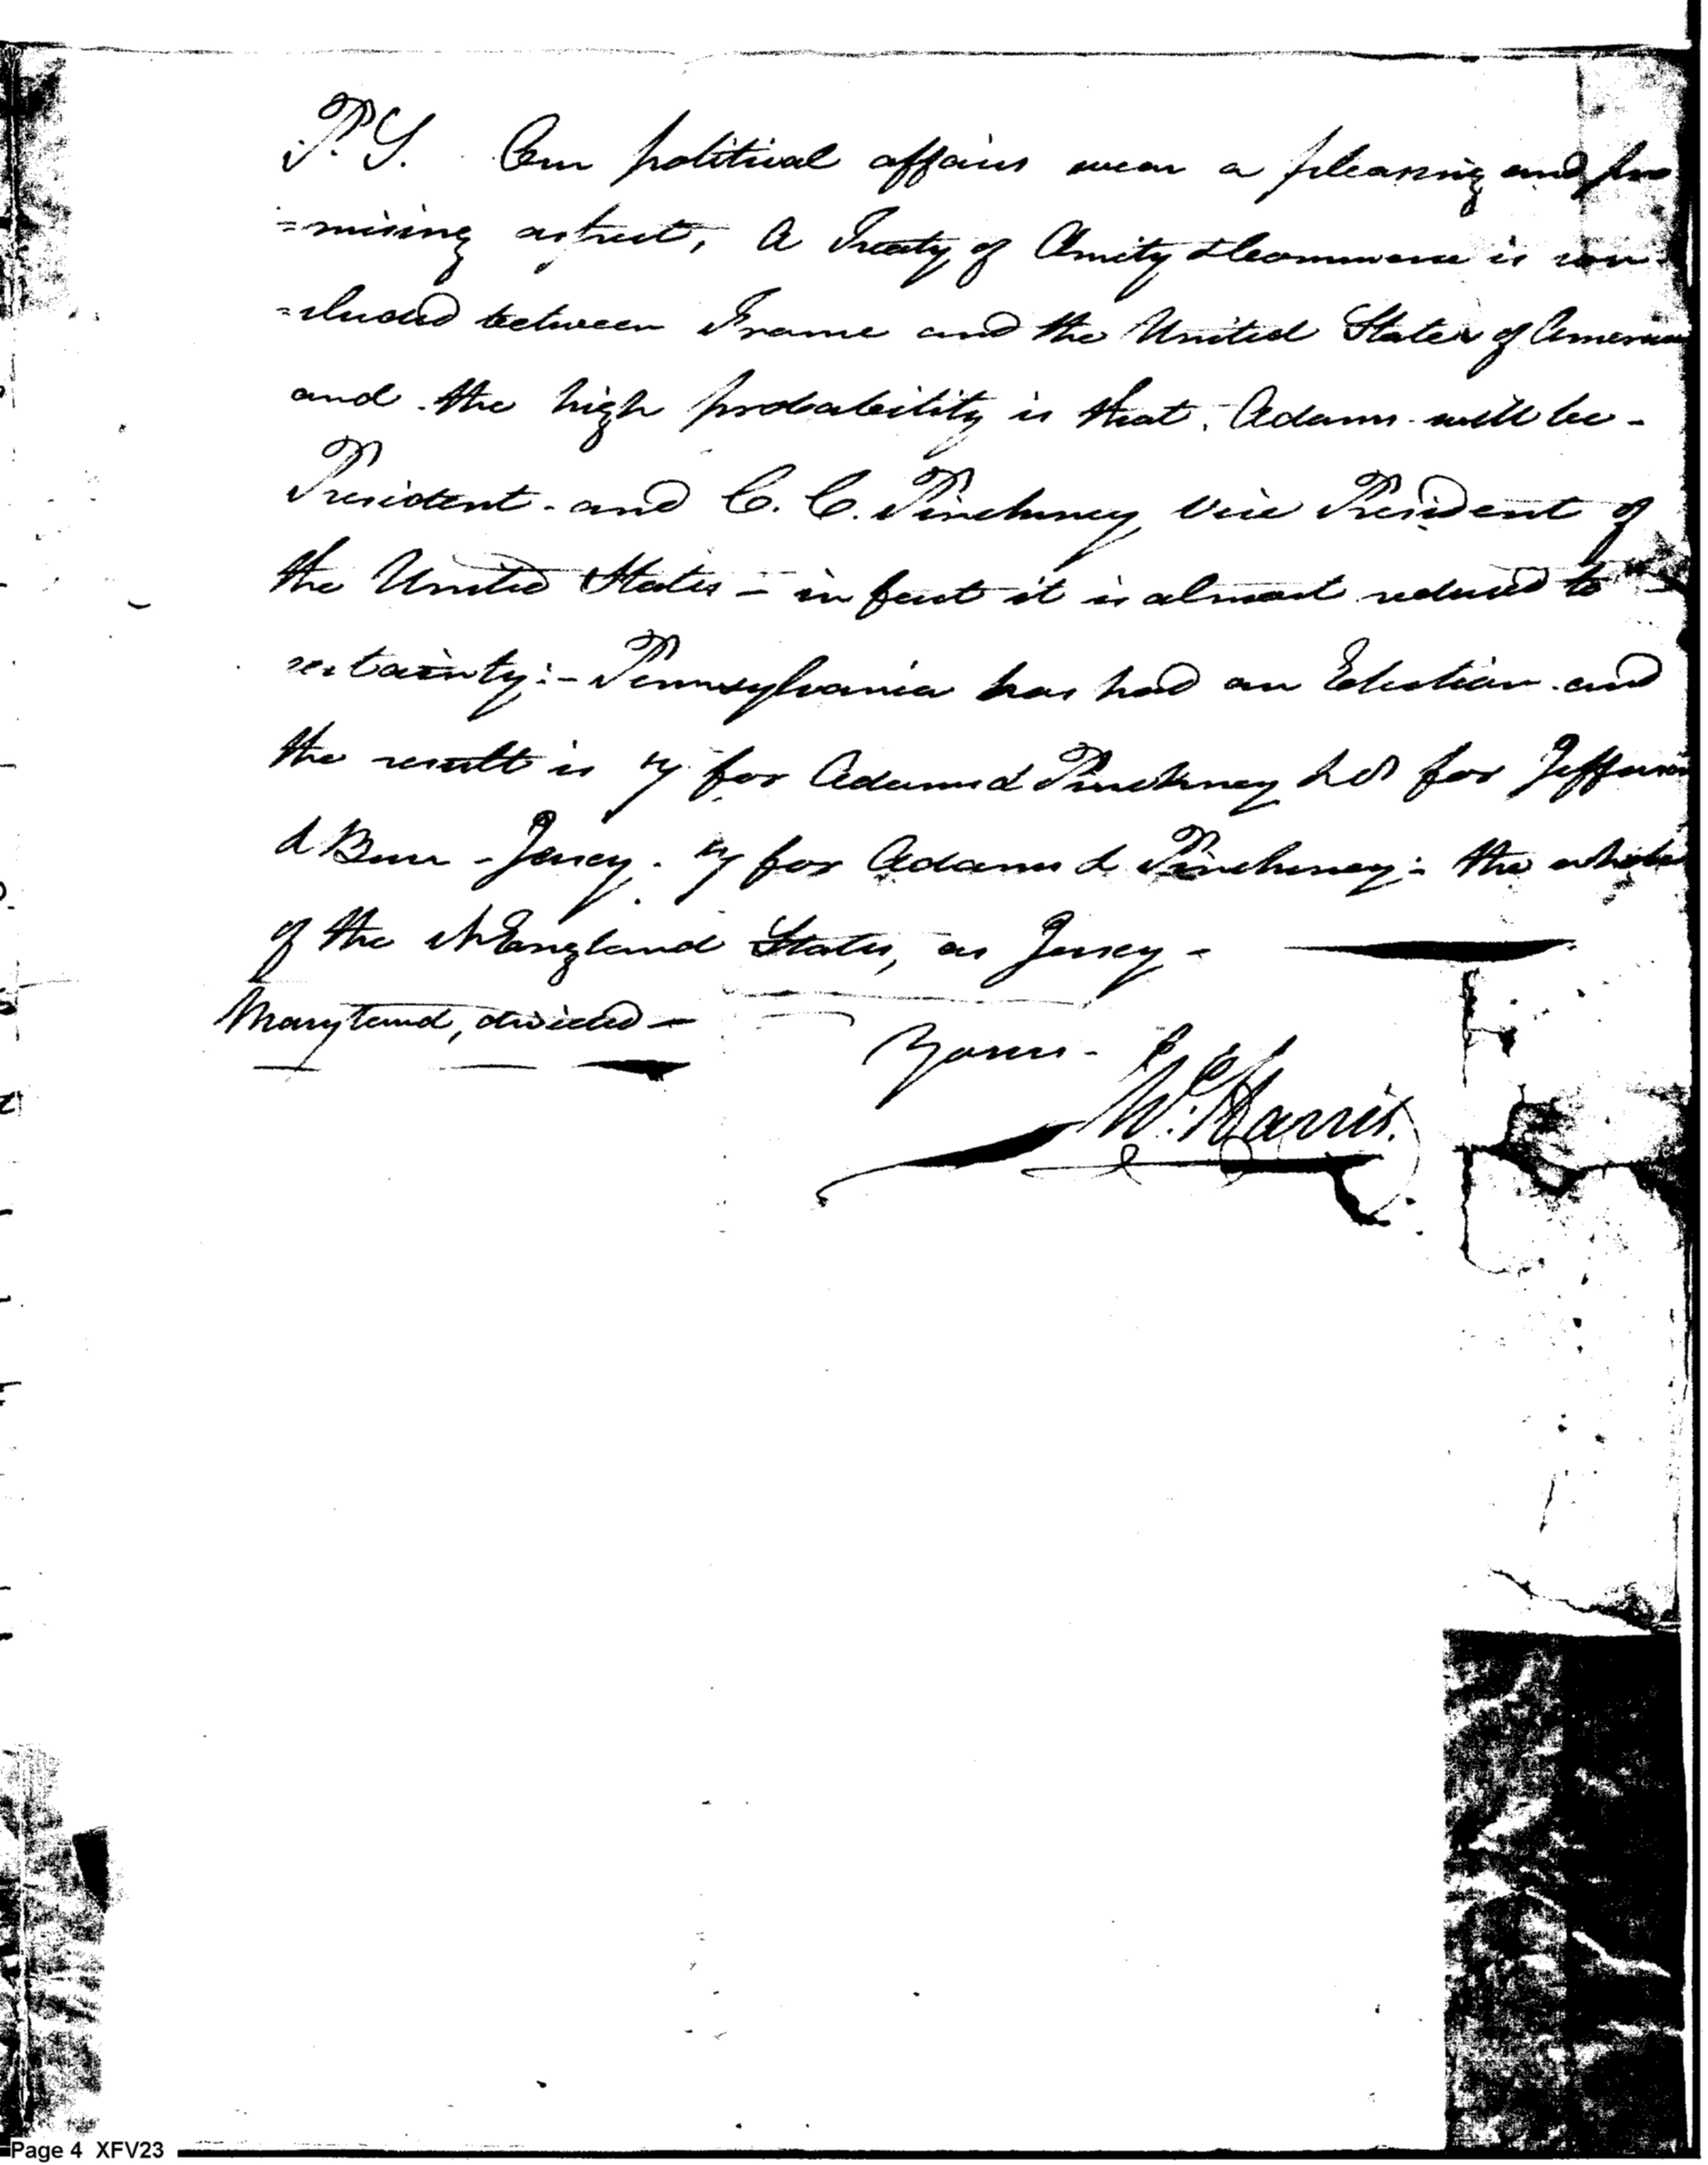 P.S. Our political affairs wear a pleasing and pro
=mising aspect, A Treaty of Amity & Commerce is con-
=cluded between France and the United States of America
and the high probability is that Adams will be -
President - and C. C. Pinckney Vice President of
the United States - in fact it is almost reduced to
certainty:- Pennsylvania has had an Election and
the result is 7 for Adams & Pinckney & 8 for Jefferson
& Burr - Jersey. 7 for Adams & Pinckney - the whole
of the N England States, as Jersey -
Maryland, divided -
Yours -
W. Harris.
Page 4 XFV23